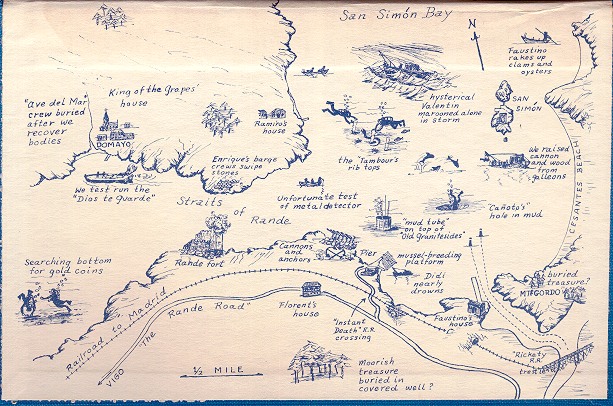 San Simón Bay
N
Faustino
rakes up
clams and
oysters
King of the Grapes'
house
"Ave del Mar"
crew buried
after we
recover
bodies
DOMAYO
Ramiro's
house
hysterical
Valentin
marooned alone
in storm
SAN
SIMÓN
the "Tambour's
rib tops
We raised
cannon
and wood
from
galleons
CESANTES BEACH
Enrique's barge
crews swipe
stones
We test run the
"Dios te Guarde"
Straits
of
Rande
Unfortunate test
of metal detector
"mud tube"
on top of
"Old Granitesides"
"Cañoto's"
hole in mud
Searching bottom
for gold coins
Rande fort
Cannons
and
anchors
Pier
mussel-breeding
platform
Didi
nearly
drowns
buried
treasure?
MTGORDO
Railroad to Madrid
The Rande Road"
VIGO
Florent's
house
"Instant
Death" R.R.
crossing
Faustino's
house
"Rickety
R.R."
trestle
½ MILE
Moorish
treasure
buried in
covered well?